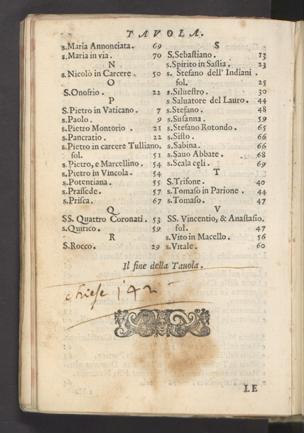 TAVOLA.
s.Maria Annonciata. 69
s.Maria in via. 70
N
s.Nicolò in Carcere. 50
O
S.Onofrio. 22
P
S.Pietro in Vaticano. 7
s.Paolo. 9
s.Pietro Montorio. 21
s.Pancratio. 22
s.Pietro in carcere Tulliano.
fol. 51
s.Pietro, e Marcellino. 54
s.Pietro in Vincola. 54
s.Potentiana. 55
s.Prassede. 57
s.Prisca. 67
Q
SS. Quattro Coronati. 53
s.Quirico. 59
R
S.Rocco. 29
S
S.Sebastiano. 13
s.Spirito in Sassia. 23
s. Stefano dell' Indiani.
fol. 25
s.Siluestro. 30
s.Saluatore del Lauro. 44
s.Stefano. 48
s.Susanna. 59
s.Stefano Rotondo. 65
s.Sisto. 66
s.Sabina. 66
s.Sauo Abbate. 68
s.Scala celi. 69
T
S.Trifone. 40
s.Tomaso in Parione. 44
s.Tomaso. 47
V
SS. Vincentio, & Anastasio.
fol. 47
s.Vito in Macello. 56
s.Vitale. 60
Il fine della Tauola.
chiese 142
LE